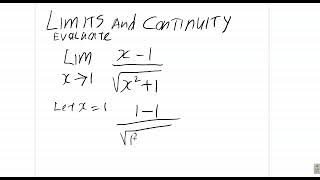 LIMITS AND CONTINUITY
EVALUATE
LIM x→1 (x-1)/√(x²+1)
Let x=1 (1-1)/√1²